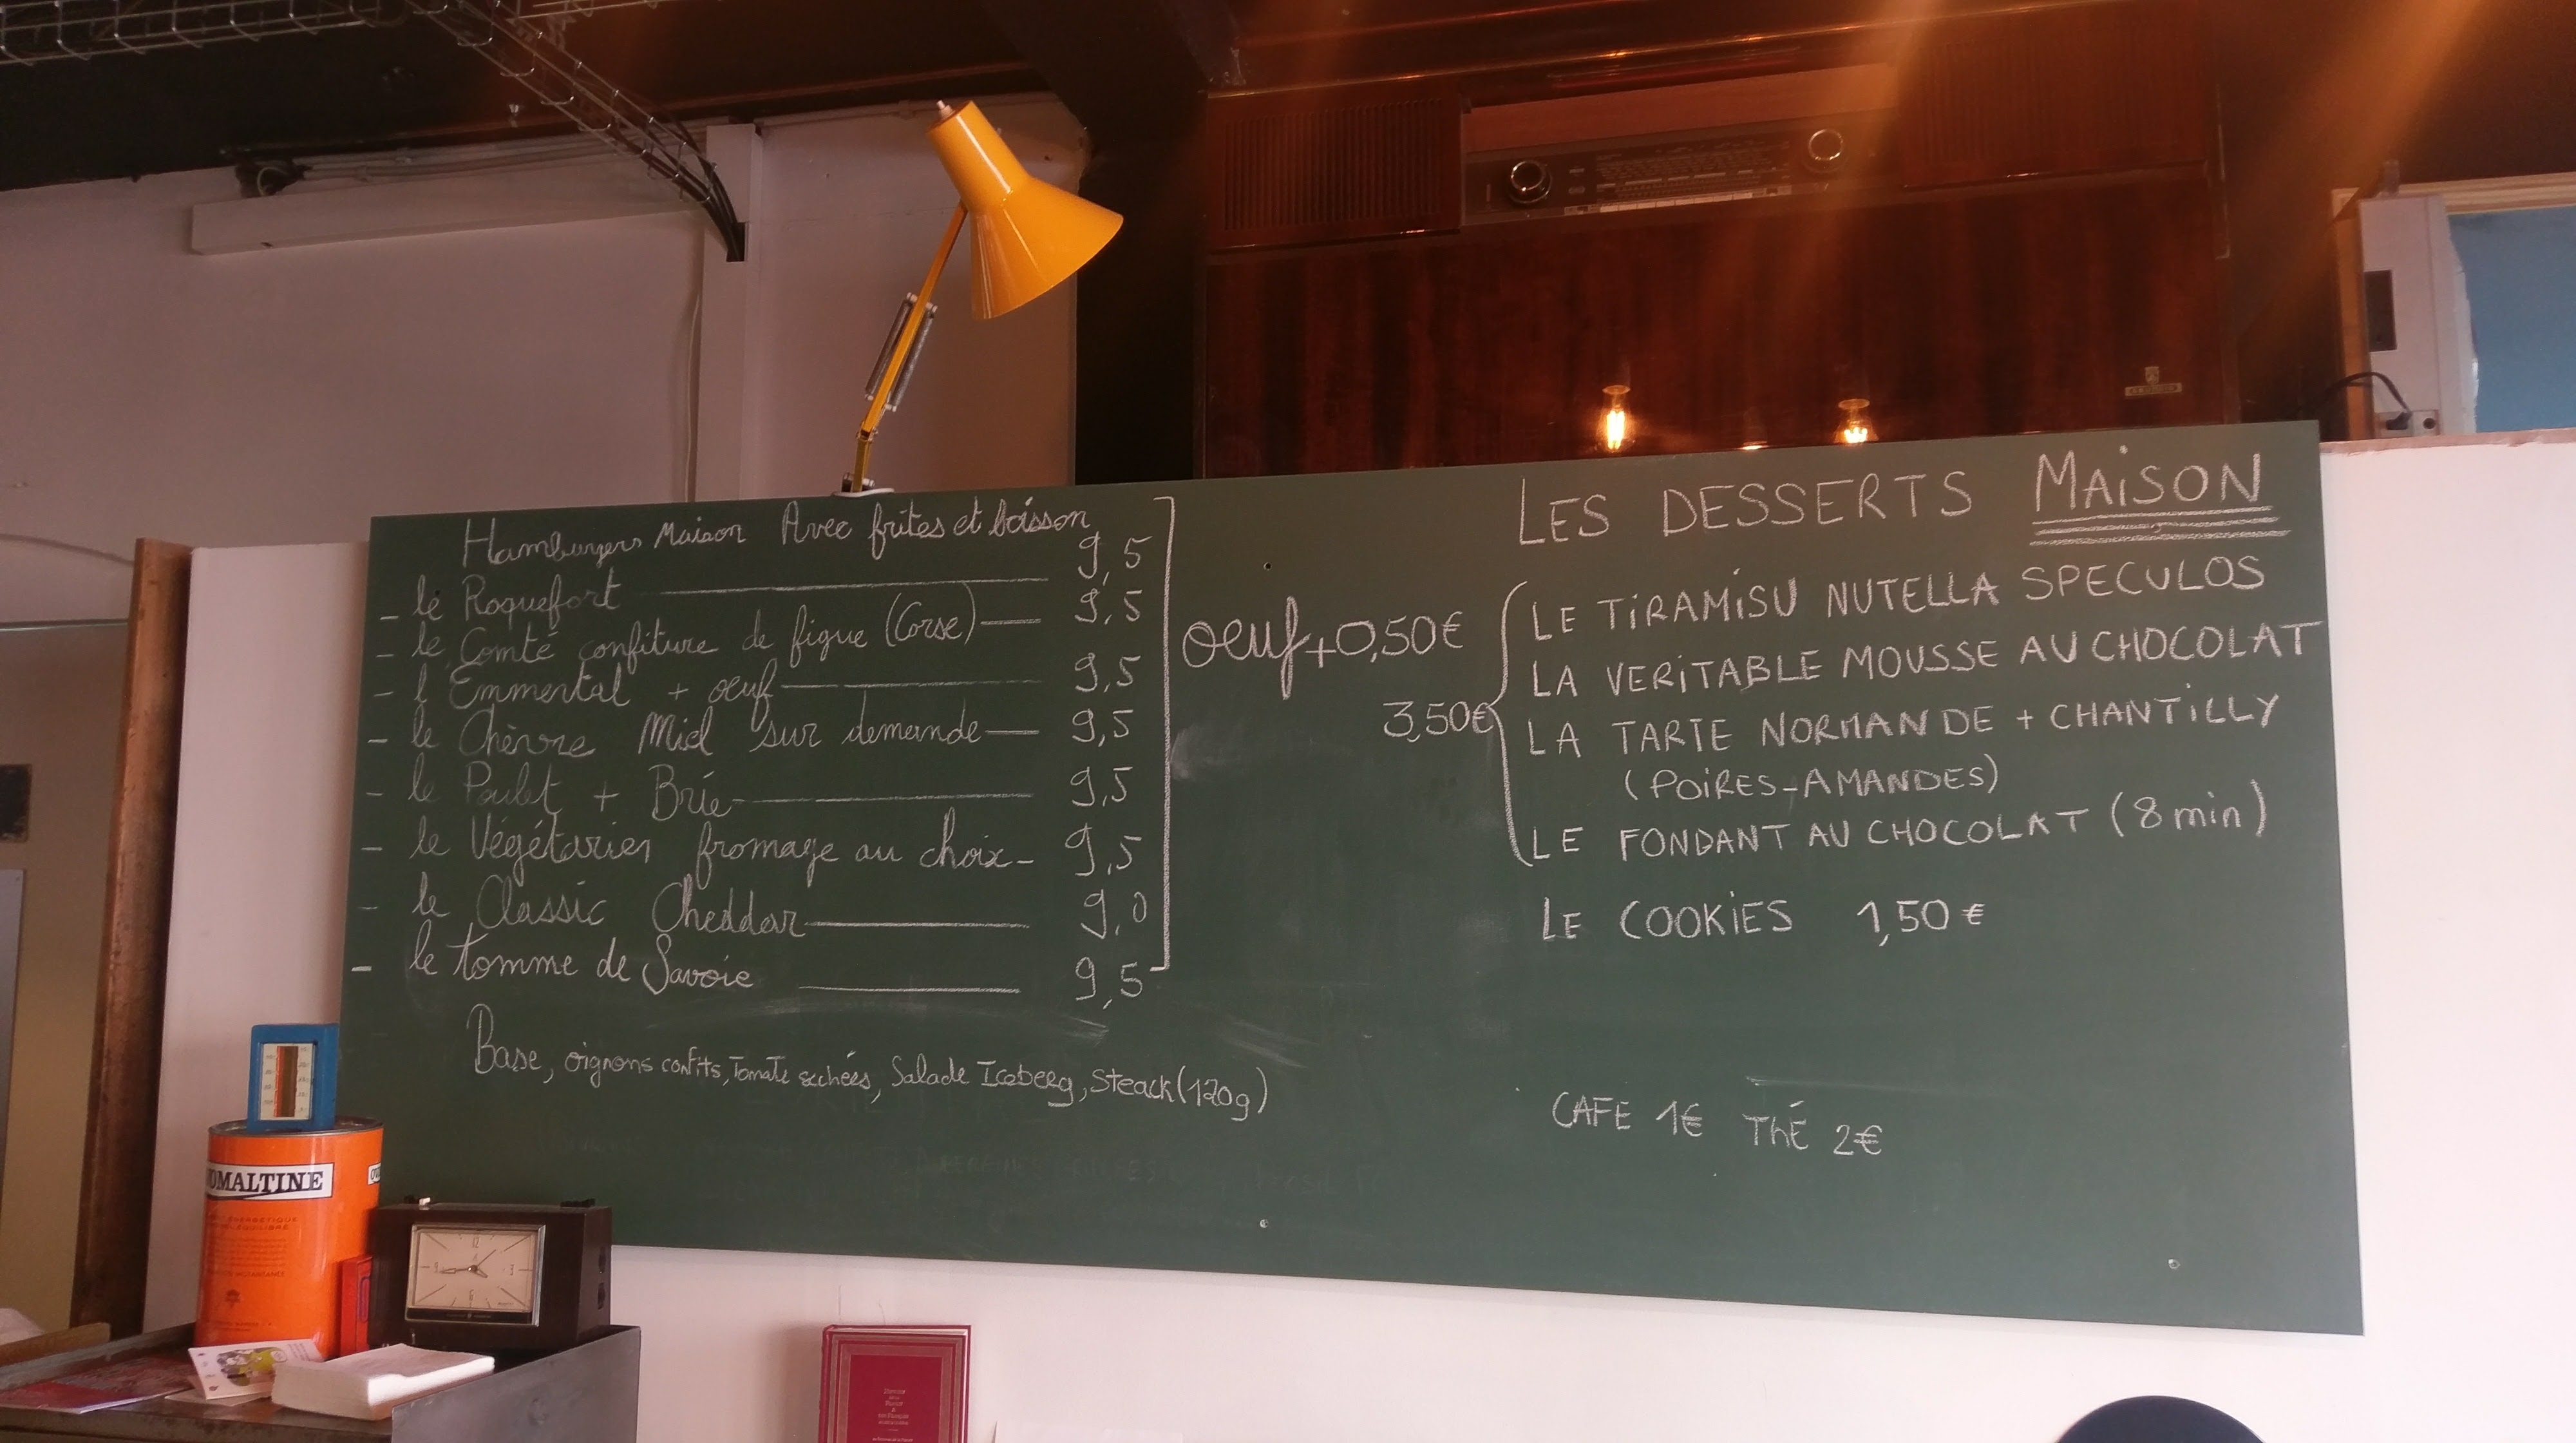 Hamburgers Maison Avec frites et boisson
- le Roquefort 9,5
- le Comté confiture de figue (Corse) 9,5
- l'Emmental + oeuf 9,5
- le Chèvre Miel sur demande 9,5
- le Poulet + Brie 9,5
- le Végétarien fromage au choix 9,5
- le Classic Cheddar 9,0
- le tomme de Savoie 9,5
oeuf + 0,50€
Base, oignons confits, Tomate sechées, Salade Iceberg, Steack (120g)
LES DESSERTS MAISON
3,50€
LE TIRAMISU NUTELLA SPECULOS
LA VERITABLE MOUSSE AU CHOCOLAT
LA TARTE NORMANDE + CHANTILLY
(POIRES-AMANDES)
LE FONDANT AU CHOCOLAT (8 min)
LE COOKIES 1,50€
CAFE 1€ THÉ 2€
OMALTINE
12
3
6
9